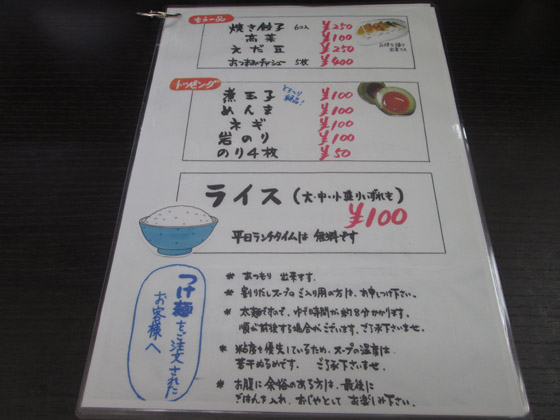 もう一品
焼き餃子 6コ入 ¥250
高菜 ¥100
えだ豆 ¥250
おつまみチャシュー 5枚 ¥400
トッピング
煮玉子 ¥100
めんま ¥100
ネギ ¥100
岩のり ¥100
のり4枚 ¥50
ライス(大・中・小盛りいずれも)
¥100
平日ランチタイムは 無料です
つけ麺をご注文された
お客様へ
* あつもり 出来ます。
* 割りだしスープご入り用の方は、お申しつけ下さい。
* 太麺ですので、ゆで時間が約8分かかります。
順が前後する場合がございます。ご了承下さいませ。
* 粘度を優先しているため、スープの温度は
若干ぬるめです。 ご了承下さいませ。
* お腹に余裕のある方は、最後に
ごはんを入れ、おじやとして お楽しみ下さい。